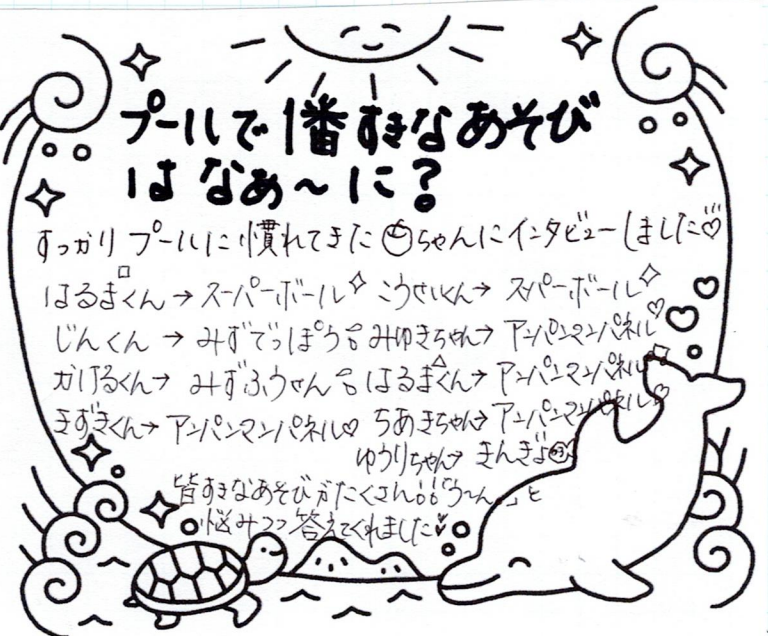 プールで1番すきなあそび
はなぁ〜に?
すっかりプールに慣れてきたちゃんにインタビューしました♡
はるまくん→スーパーボール こうせいくん→スーパーボール
じんくん→みずでっぽう みゆきちゃん→アンパンマンパネル♡
かけるくん→みずふうせん はるまくん→アンパンマンパネル♡
きずきくん→アンパンマンパネル♡ ちあきちゃん→アンパンマンパネル♡
ゆうりちゃん→きんぎょ
皆すきなあそびがたくさん!!「う〜ん。」と
悩みつつ答えてくれました♡